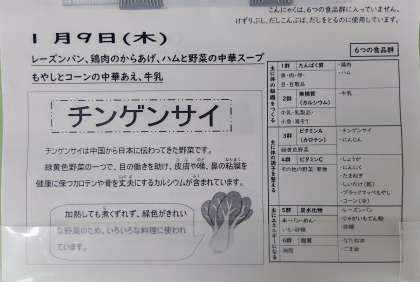 こんにゃくは、6つの食品群に入っていません。
けずりぶし、だしこんぶは、だしをとるのに使用しています。
1月9日(木)
レーズンパン、鶏肉のからあげ、ハムと野菜の中華スープ
もやしとコーンの中華あえ、牛乳
チンゲンサイ
チンゲンサイは中国から日本に伝わってきた野菜です。
緑黄色野菜の一つで、目の働きを助け、皮膚や喉、鼻の粘膜を
健康に保つカロテンや骨を丈夫にするカルシウムが含まれています。
加熱しても煮くずれず、緑色がきれい
な野菜のため、いろいろな料理に使われ
ています。
6つの食品群
主に体の組織をつくる
1群 たんぱく質
魚・肉・卵・
豆・豆製品
・鶏肉
・ハム
2群 無機質
(カルシウム)
牛乳・乳製品・
小魚・海そう
・牛乳
主に体の調子を整える
3群 ビタミンA
(カロテン)
緑黄色野菜
・チンゲンサイ
・にんじん
4群 ビタミンC
その他の野菜・果物
・しょうが
・にんにく
・たまねぎ
・しいたけ(乾)
・ブラックマッペもやし
・コーン(冷)
主にエネルギーになる
5群 炭水化物
米・パン・めん・
いも・砂糖
・レーズンパン
・じゃがいもでん粉
・砂糖
6群 脂質
油脂
・なたね油
・ごま油